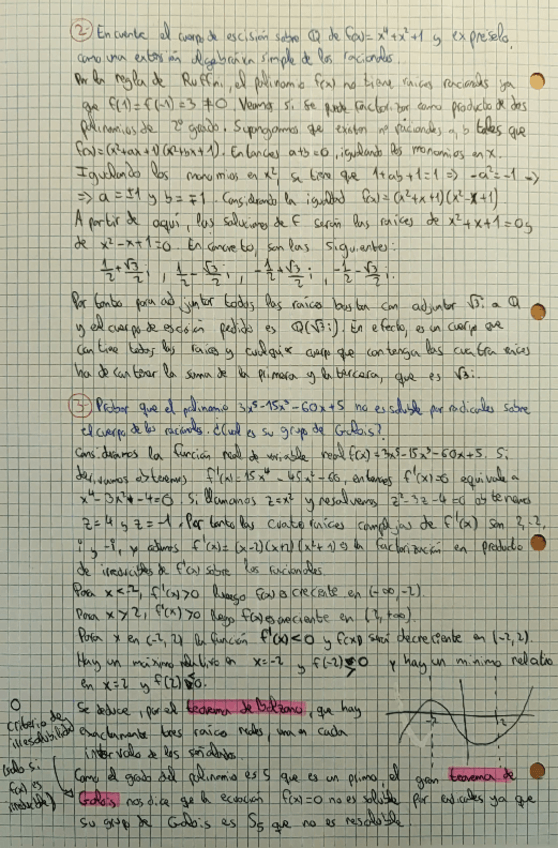 2. Encuentre el cuerpo de escisión sobre Q de f(x)=x⁴+x²+1 y expréselo,
como una extensión algebraica simple de los racionales.
Por la regla de Ruffini, el polinomio f(x) no tiene raíces racionales ya
que f(1)=f(-1)=3≠0. Veamos si se puede factorizar como producto de dos
polinomios de 2º grado. Supongamos que existen nº racionales a, b tales que
f(x)=(x²+ax+1)(x²+bx+1). Entonces a+b=0, igualando los monomios en x.
Igualando los monomios en x², se tiene que 1+ab+1=1 ⇒ -a²=-1 ⇒
⇒ a=±1 y b=∓1. Considerando la igualdad f(x)=(x²+x+1)(x²-x+1)
A partir de aquí, las soluciones de f serán las raíces de x²+x+1=0 y
de x²-x+1=0. En concreto, son las siguientes:
1/2+√3/2 i, 1/2-√3/2 i, -1/2+√3/2 i, -1/2-√3/2 i.
Por tanto para adjuntar todas las raíces basta con adjuntar √3i a Q
y el cuerpo de escisión pedido es Q(√3i). En efecto, es un cuerpo que
contiene todas las raíces y cualquier cuerpo que contenga las cuatro raíces
ha de contener la suma de la primera y la tercera, que es √3i.
3. Probar que el polinomio 3x⁵-15x³-60x+5 no es soluble por radicales sobre
el cuerpo de los racionales. ¿Cuál es su grupo de Galois?
Consideramos la función real de variable real f(x)=3x⁵-15x³-60x+5. Si
derivamos obtenemos f'(x)=15x⁴-45x²-60, entonces f'(x)=0 equivale a
x⁴-3x²-4=0. Si llamamos z=x² y resolvemos z²-3z-4=0 obtenemos
z=4 y z=-1. Por tanto las cuatro raíces complejas de f'(x) son 2,-2,
i y -i, y además f'(x)=(x-2)(x+2)(x²+1) es la factorización en producto
de irreducibles de f'(x) sobre los racionales.
Para x<-2, f'(x)>0 luego f(x) es creciente en (-∞,-2).
Para x>2, f'(x)>0 luego f(x) es creciente en (2,+∞).
Para x en (-2,2) la función f'(x)<0 y f(x) será decreciente en (-2,2).
Hay un máximo relativo en x=-2 y f(-2)>0 y hay un mínimo relativo
en x=2 y f(2)<0.
Se deduce, por el teorema de bolzano, que hay
exactamente tres raíces reales, una en cada
intervalo de los señalados
-2
2
O
criterio de
irresolubilidad
(solo si
f(x) es
irreducible)
Como el grado del polinomio es 5 que es un primo, el gran teorema de
Galois nos dice que la ecuación f(x)=0 no es soluble por radicales ya que
su grupo de Galois es S₅ que no es resoluble.